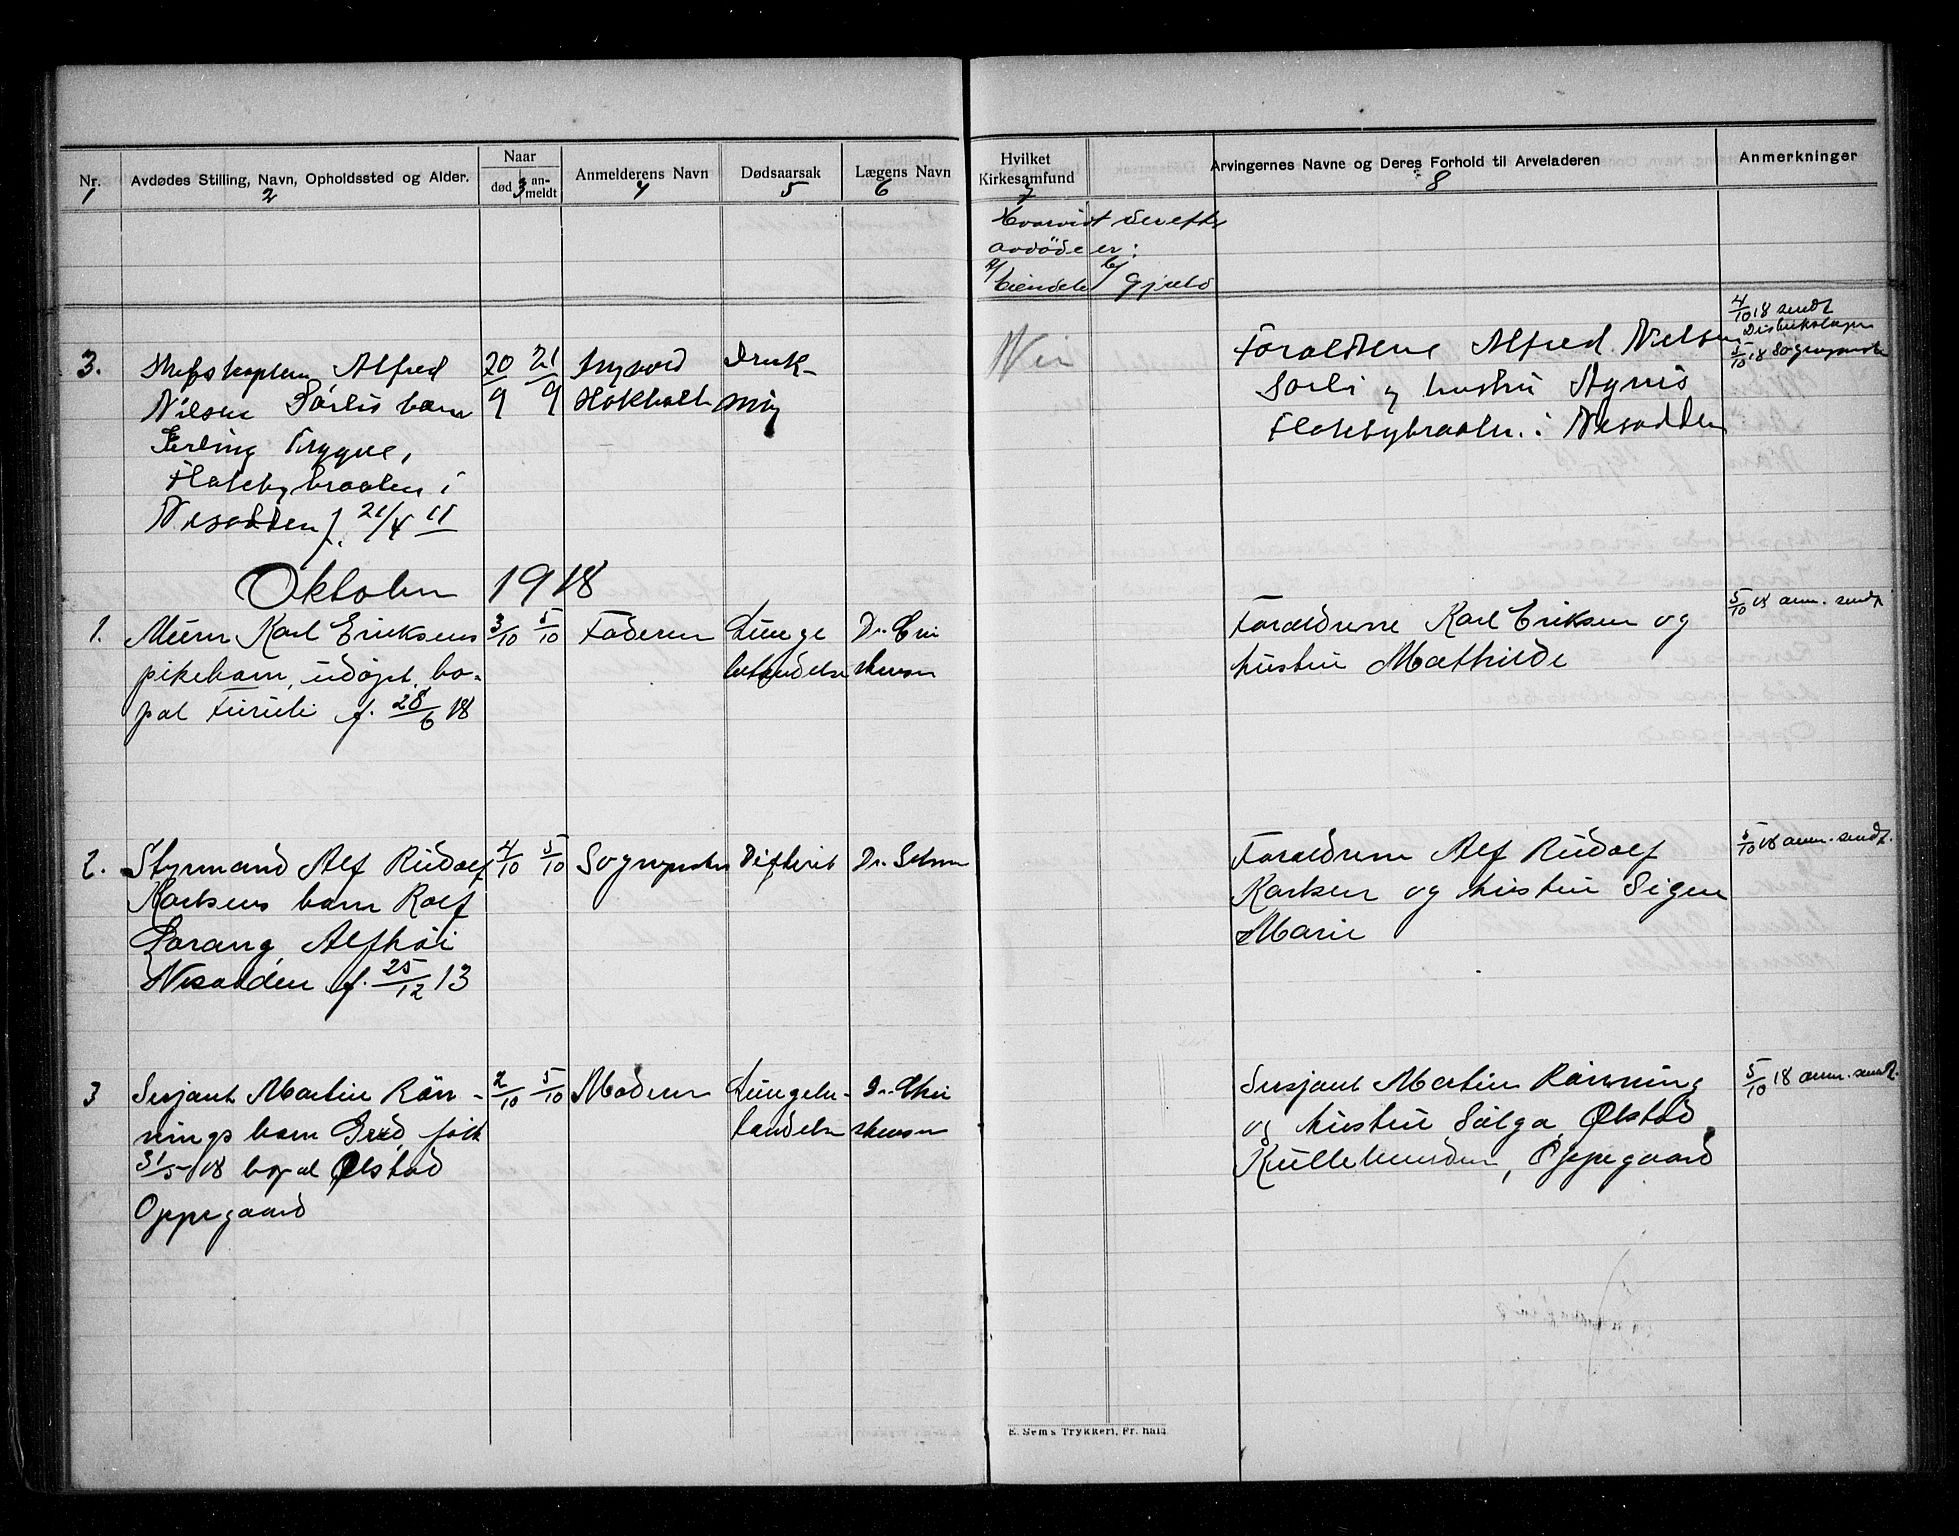 Nr. Avdødes Stilling, Navn, Opholdssted og Alder. Naar død an-meldt Anmelderens Navn Dødsaarsak Lægens Navn Hvilket Kirkesamfund Arvingernes Navne og Deres Forhold til Arveladeren Anmerkninger
1 2 3 4 5 6 7 8
Hvorvidt der efter
avdøde er:
a/ b/
Eiendele Gjæld
3. Skibskaptein Alfred 20/9 21/9 Druk-
Nilsen Sørlis barn ning
Erling Trygve,
Flatebybraaten i
Nesodden f. 21/4 11
Nei
Forældrene Alfred Nielsen
Sørli og hustru Agnes
Flatebybraaten i Nesodden
4/10 18 sendt
Distriktslægen
5/10 18 Sogneprest
Oktober 1918
1. Murer Karl Eriksens 3/10 5/10 Faderen Lunge Dr. Chri
pikebarn, udøpt, bo- betændelse stensen
pæl Furuli f. 28/6 18
Forældrene Karl Eriksen og
hustru Mathilde
5/10 18 anm. sendt
2. Styrmand Alf Rudolf 4/10 5/10 Sognepresten Difterit Dr.
Karlsens barn Rolf
Alfhøi
Nesodden f. 25/12 13
Forældrene Alf Rudolf
Karlsen og hustru Signe
Marie
5/10 18 anm. sendt.
3 Sersjant Martin Røn- 2/10 5/10 Moderen Lungebe- Dr. Chri
nings barn født tændelse stensen
31/5 18 bopæl Ølstad
Oppegaard
Sersjant Martin Rønning
og hustru Ølstad
Kullebunden, Oppegaard
5/10 18 anm. sendt.
E. Sem's Trykkeri, Fr. hald